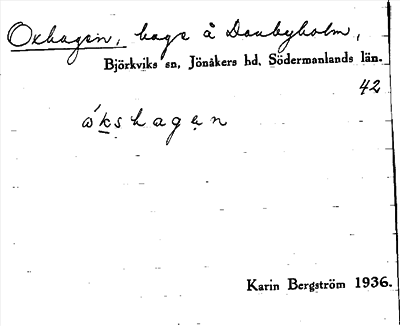 Oxhagen, hage å Danbyholm,
Björkviks sn, Jönåkers hd, Södermanlands län.
42
ώkshagen
Karin Bergström 1936.